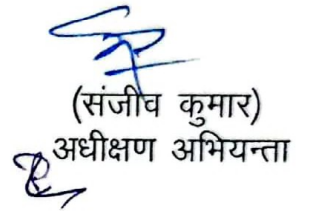 (संजीव कुमार)
अधीक्षण अभियन्ता